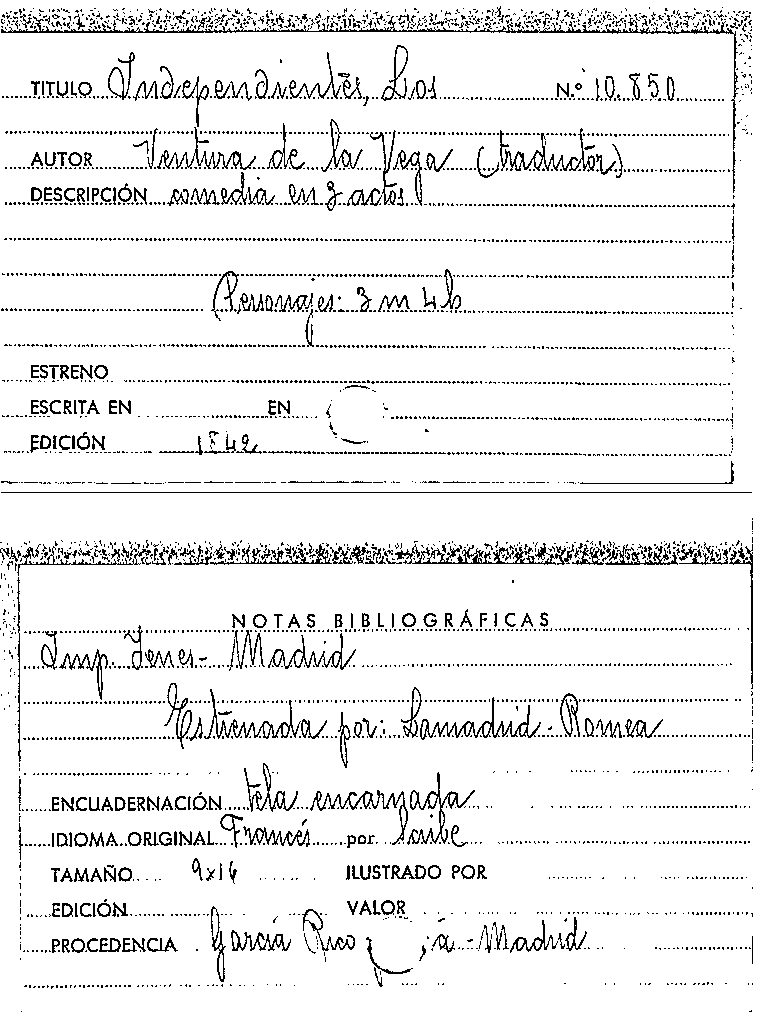 TITULO Independientes, Los N.º 10.850
AUTOR Ventura de la Vega (traductor)
DESCRIPCIÓN comedia en 3 actos
Personajes: 3 m 4 h
ESTRENO
ESCRITA EN EN
EDICIÓN 1842
NOTAS BIBLIOGRÁFICAS
Imp. Yenes - Madrid
Estrenada por: Lamadrid - Romea
ENCUADERNACIÓN tela encarnada
IDIOMA ORIGINAL Francés por Scribe
TAMAÑO 9x16 ILUSTRADO POR
EDICIÓN VALOR
PROCEDENCIA García Rico ía - Madrid